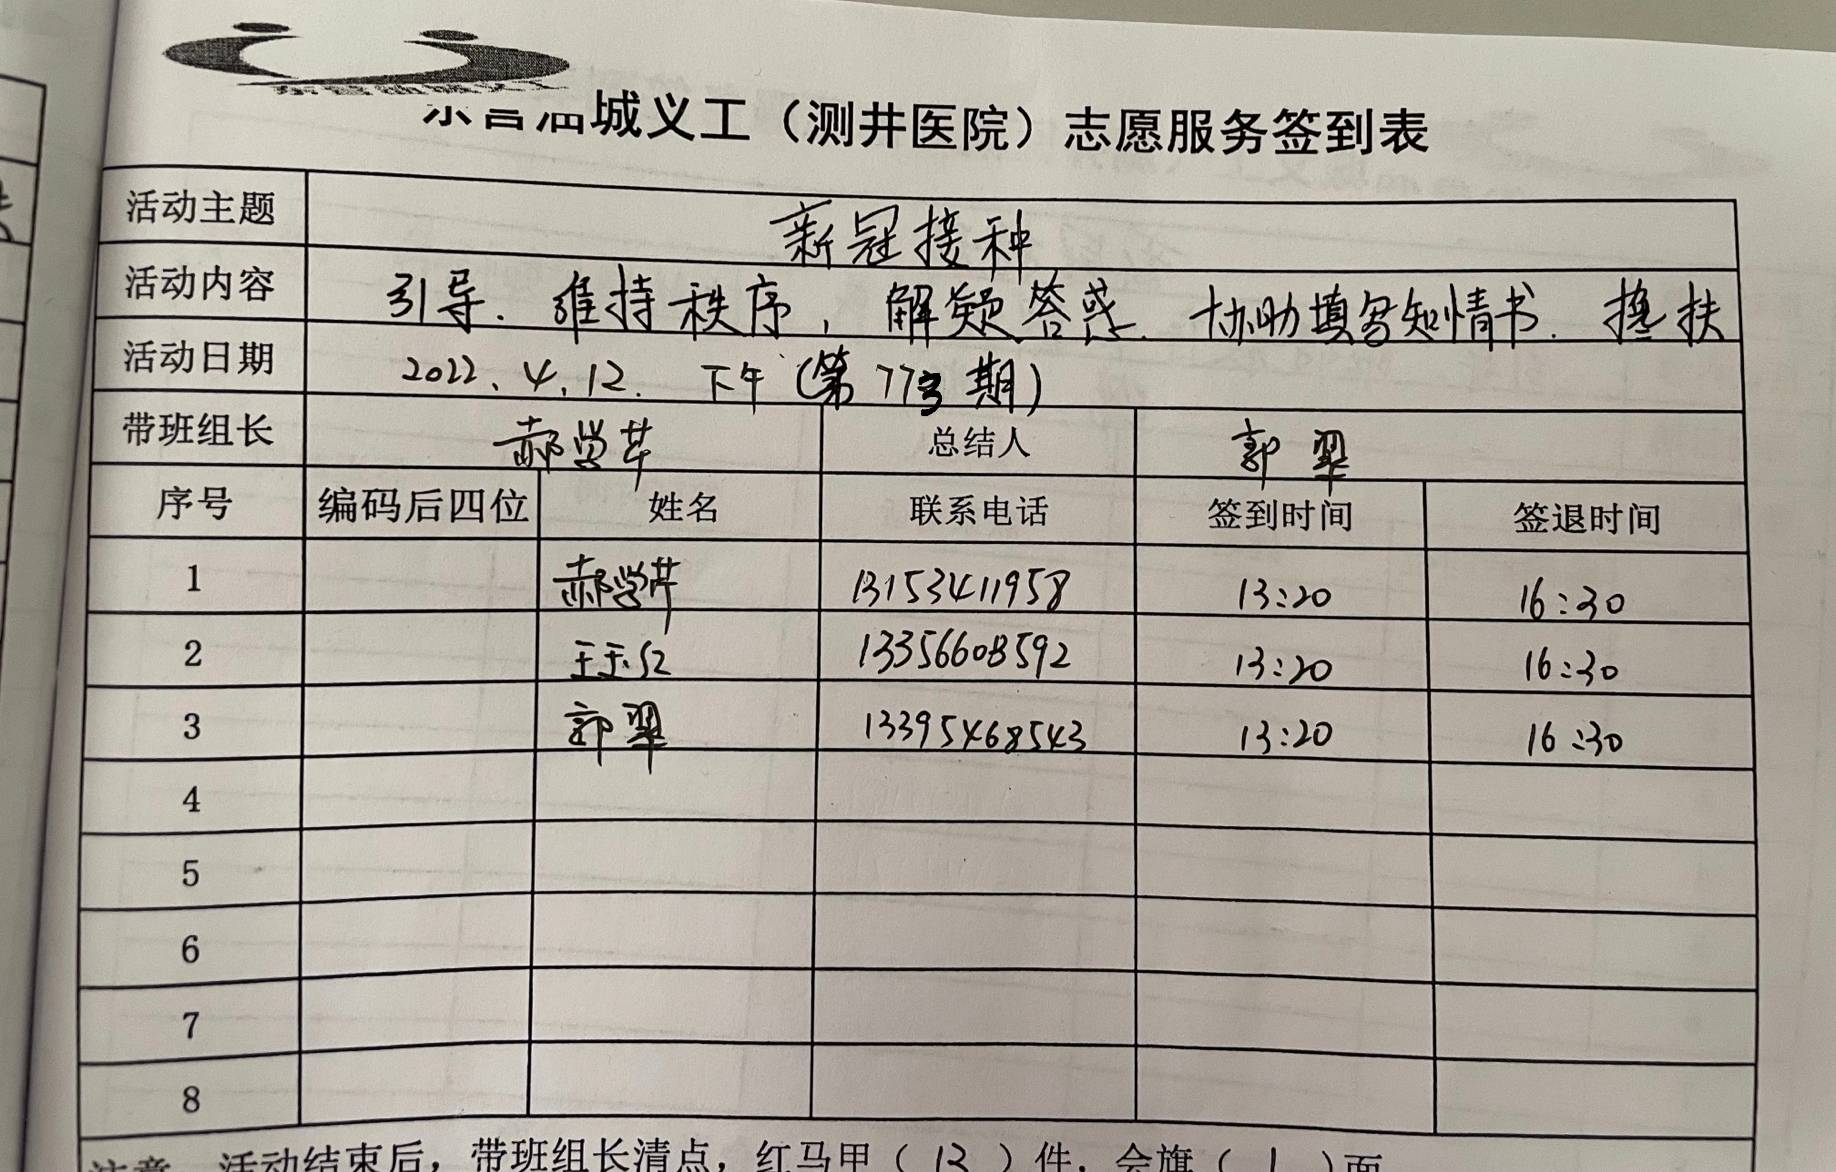 东营油城义工（测井医院）志愿服务签到表
活动主题 新冠接种
活动内容 引导. 维持秩序, 解疑答惑. 协助填写知情书. 搀扶
活动日期 2022.4.12. 下午(第773期)
带班组长 郝学芹 总结人 郭翠
序号 编码后四位 姓名 联系电话 签到时间 签退时间
1 郝学芹 13153411958 13:20 16:30
2 王玉红 13356608592 13:20 16:30
3 郭翠 13395468543 13:20 16:30
4
5
6
7
8
注意 活动结束后，带班组长清点，红马甲（13）件，会旗（1）面